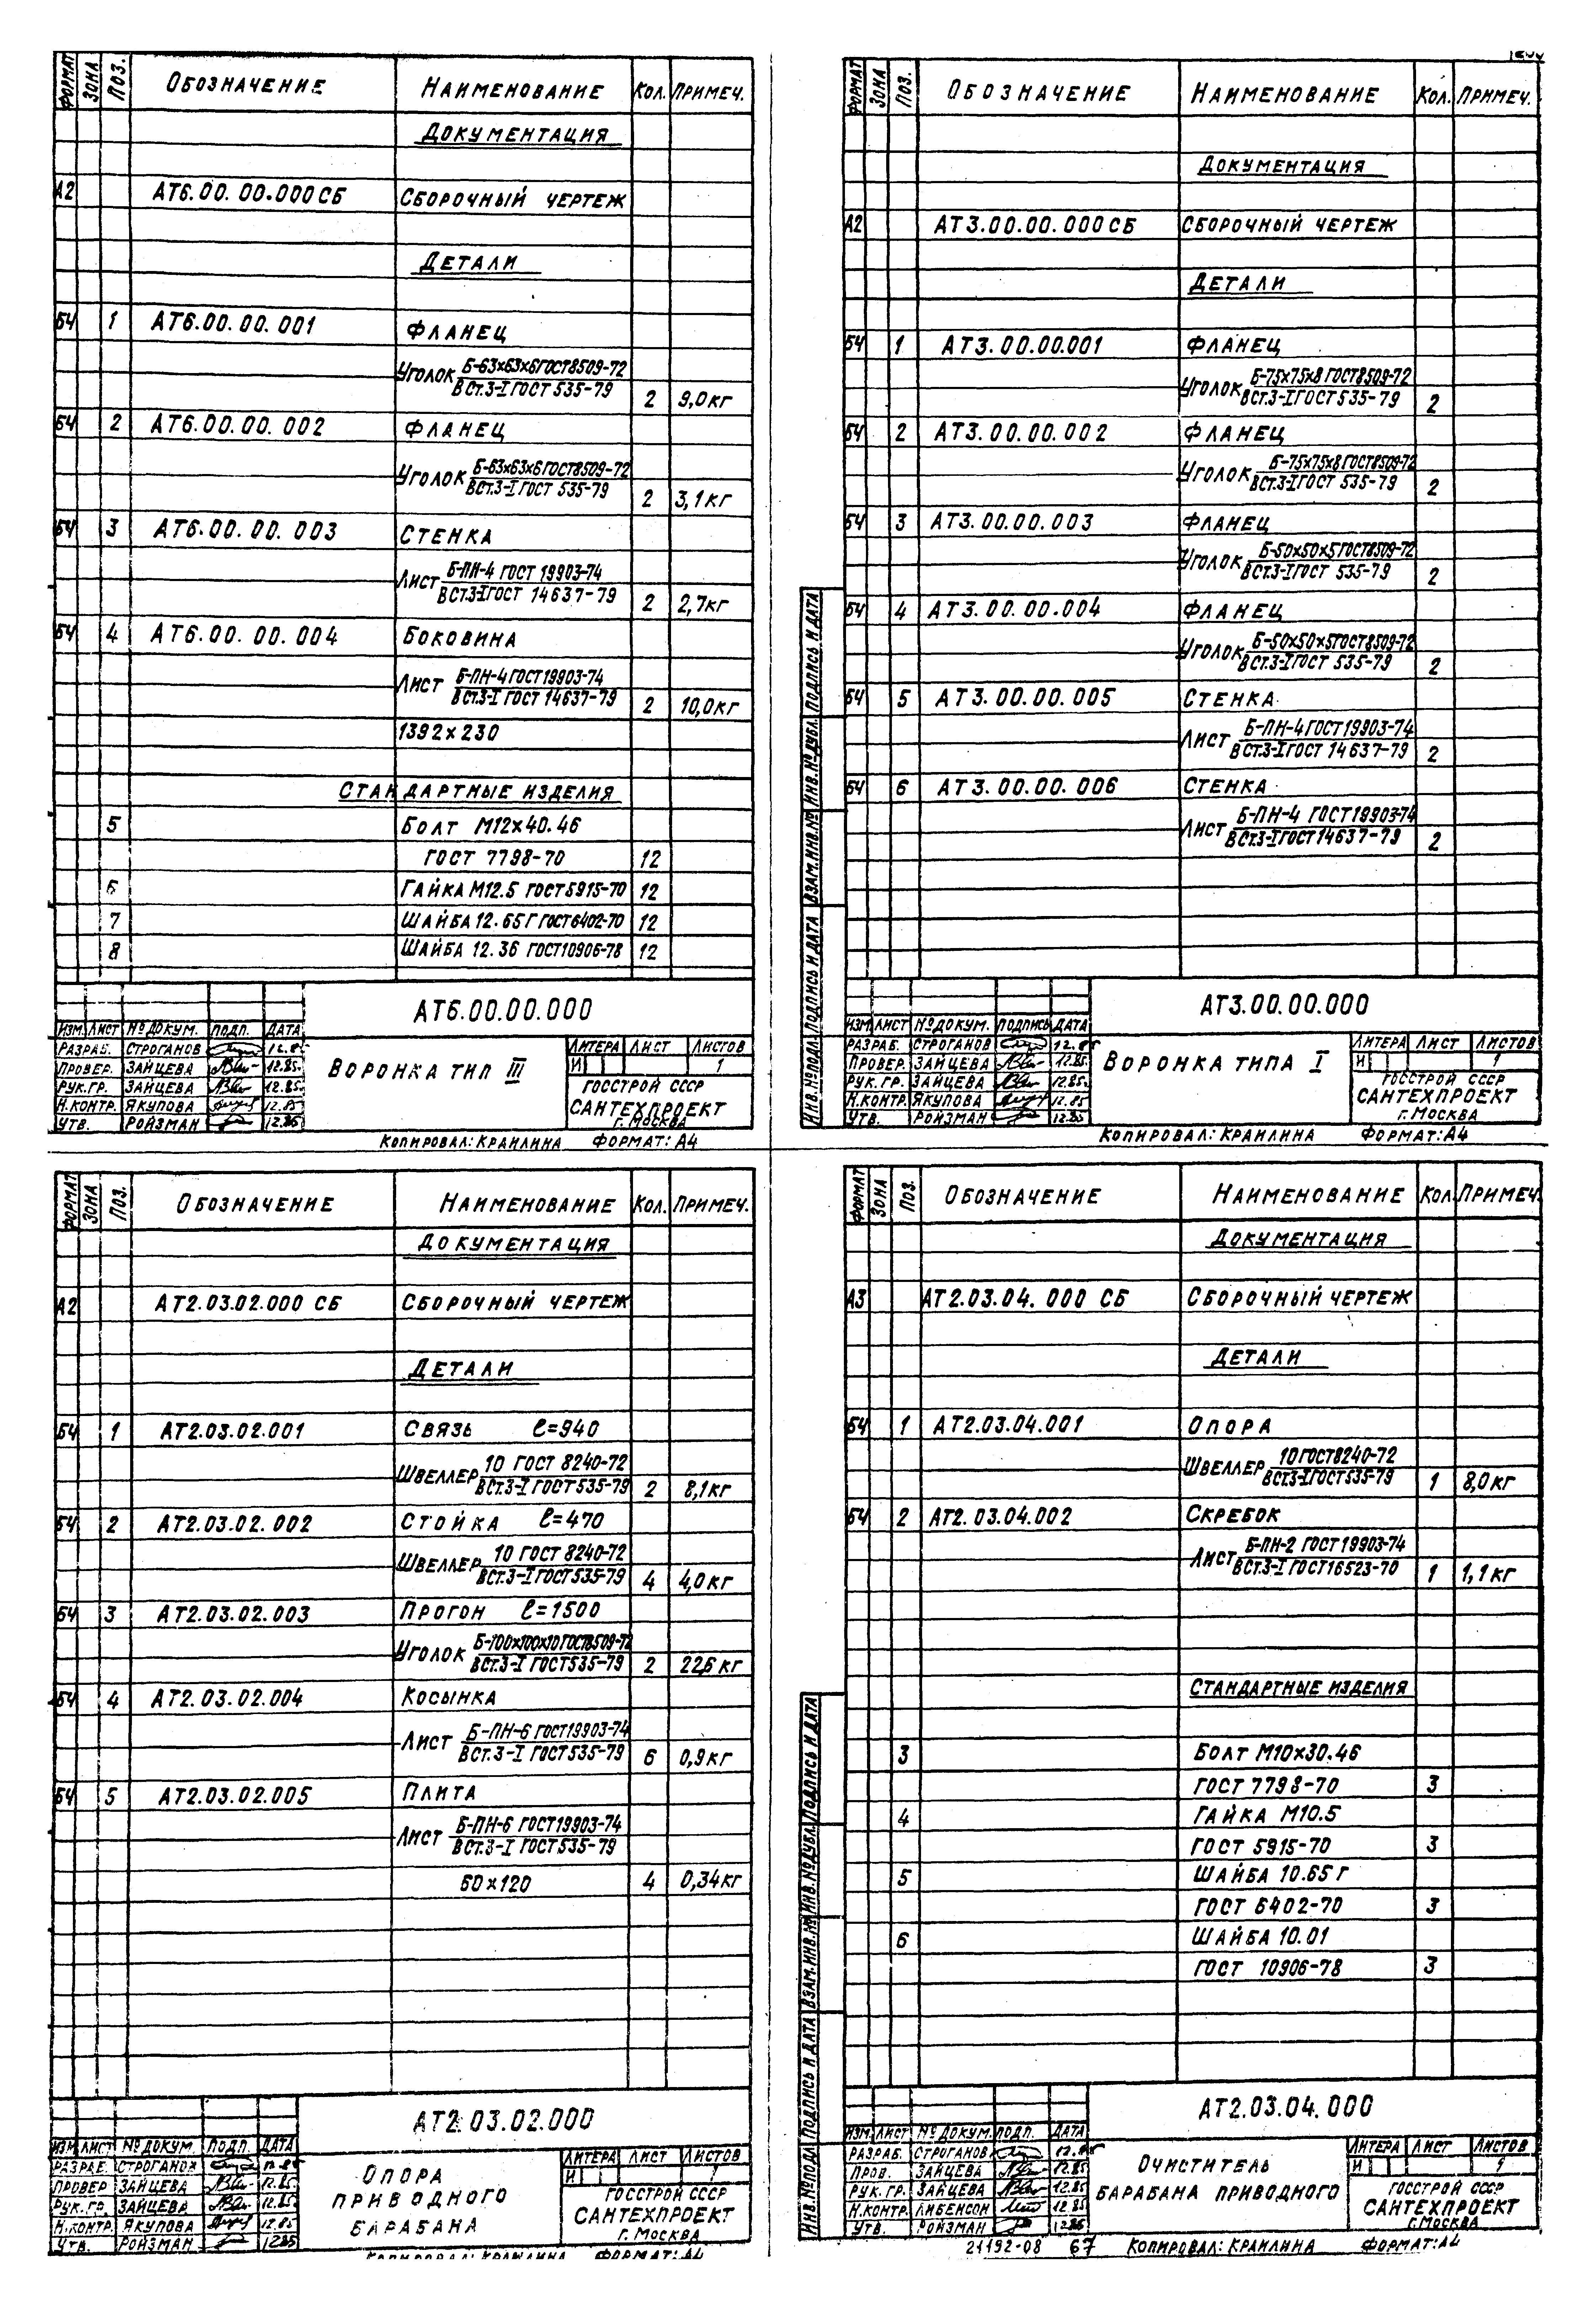 ФОРМАТ ЗОНА ПОЗ. ОБОЗНАЧЕНИЕ НАИМЕНОВАНИЕ КОЛ. ПРИМЕЧ.
ДОКУМЕНТАЦИЯ
А2 АТ6.00.00.000СБ СБОРОЧНЫЙ ЧЕРТЕЖ
ДЕТАЛИ
БЧ 1 АТ6.00.00.001 ФЛАНЕЦ
УГОЛОК Б-63х63х6ГОСТ8509-72
ВСт.3-I ГОСТ 535-79 2 9,0кг
БЧ 2 АТ6.00.00.002 ФЛАНЕЦ
УГОЛОК Б-63х63х6ГОСТ8509-72
ВСт.3-I ГОСТ 535-79 2 3,1кг
БЧ 3 АТ6.00.00.003 СТЕНКА
ЛИСТ Б-ПН-4 ГОСТ 19903-74
ВСт.3-I ГОСТ 14637-79 2 2,7кг
БЧ 4 АТ6.00.00.004 БОКОВИНА
ЛИСТ Б-ПН-4 ГОСТ 19903-74
ВСт.3-I ГОСТ 14637-79 2 10,0кг
1392х230
СТАНДАРТНЫЕ ИЗДЕЛИЯ
5 БОЛТ М12х40.46
ГОСТ 7798-70 12
6 ГАЙКА М12.5 ГОСТ5915-70 12
7 ШАЙБА 12.65Г ГОСТ6402-70 12
8 ШАЙБА 12.36 ГОСТ10906-78 12
АТ6.00.00.000
ИЗМ. ЛИСТ № ДОКУМ. ПОДП. ДАТА
РАЗРАБ. СТРОГАНОВ 12.85
ПРОВЕР. ЗАЙЦЕВА 12.85.
РУК.ГР. ЗАЙЦЕВА 12.85.
Н.КОНТР. ЯКУПОВА 12.85
УТВ. РОЙЗМАН 12.85
ВОРОНКА ТИП III
ЛИТЕРА ЛИСТ ЛИСТОВ
И 1
ГОССТРОЙ СССР
САНТЕХПРОЕКТ
г. МОСКВА
КОПИРОВАЛ: КРАИЛИНА ФОРМАТ: А4
ФОРМАТ ЗОНА ПОЗ. ОБОЗНАЧЕНИЕ НАИМЕНОВАНИЕ КОЛ. ПРИМЕЧ.
ДОКУМЕНТАЦИЯ
А2 АТ3.00.00.000СБ СБОРОЧНЫЙ ЧЕРТЕЖ
ДЕТАЛИ
БЧ 1 АТ3.00.00.001 ФЛАНЕЦ
УГОЛОК Б-75х75х8 ГОСТ8509-72
ВСт.3-I ГОСТ 535-79 2
БЧ 2 АТ3.00.00.002 ФЛАНЕЦ
УГОЛОК Б-75х75х8 ГОСТ8509-72
ВСт.3-I ГОСТ 535-79 2
БЧ 3 АТ3.00.00.003 ФЛАНЕЦ
УГОЛОК Б-50х50х5ГОСТ8509-72
ВСт.3-I ГОСТ 535-79 2
БЧ 4 АТ3.00.00.004 ФЛАНЕЦ
УГОЛОК Б-50х50х5ГОСТ8509-72
ВСт.3-I ГОСТ 535-79 2
БЧ 5 АТ3.00.00.005 СТЕНКА
ЛИСТ Б-ПН-4 ГОСТ 19903-74
ВСт.3-I ГОСТ 14637-79 2
БЧ 6 АТ3.00.00.006 СТЕНКА
ЛИСТ Б-ПН-4 ГОСТ 19903-74
ВСт.3-I ГОСТ 14637-79 2
ИНВ.№ПОДЛ. ПОДПИСЬ И ДАТА ВЗАМ.ИНВ.№ ИНВ.№ДУБЛ. ПОДПИСЬ И ДАТА
АТ3.00.00.000
ИЗМ ЛИСТ № ДОКУМ. ПОДПИСЬ ДАТА
РАЗРАБ. СТРОГАНОВ 12.85
ПРОВЕР. ЗАЙЦЕВА 12.85
РУК.ГР. ЗАЙЦЕВА 12.85.
Н.КОНТР. ЯКУПОВА 12.85
УТВ. РОЙЗМАН 12.85
ВОРОНКА ТИПА I
ЛИТЕРА ЛИСТ ЛИСТОВ
И 1
ГОССТРОЙ СССР
САНТЕХПРОЕКТ
г. МОСКВА
КОПИРОВАЛ: КРАИЛИНА ФОРМАТ: А4
ФОРМАТ ЗОНА ПОЗ. ОБОЗНАЧЕНИЕ НАИМЕНОВАНИЕ КОЛ. ПРИМЕЧ.
ДОКУМЕНТАЦИЯ
А2 АТ2.03.02.000 СБ СБОРОЧНЫЙ ЧЕРТЕЖ
ДЕТАЛИ
БЧ 1 АТ2.03.02.001 СВЯЗЬ ℓ=940
ШВЕЛЛЕР 10 ГОСТ 8240-72
ВСт.3-I ГОСТ535-79 2 8,1кг
БЧ 2 АТ2.03.02.002 СТОЙКА ℓ=470
ШВЕЛЛЕР 10 ГОСТ 8240-72
ВСт.3-I ГОСТ535-79 4 4,0кг
БЧ 3 АТ2.03.02.003 ПРОГОН ℓ=1500
УГОЛОК Б-100х100х10ГОСТ8509-72
ВСт.3-I ГОСТ535-79 2 22,6 кг
БЧ 4 АТ2.03.02.004 КОСЫНКА
ЛИСТ Б-ПН-6 ГОСТ19903-74
ВСт.3-I ГОСТ535-79 6 0,9кг
БЧ 5 АТ2.03.02.005 ПЛИТА
ЛИСТ Б-ПН-6 ГОСТ19903-74
ВСт.3-I ГОСТ535-79
60х120 4 0,34кг
АТ2.03.02.000
ИЗМ ЛИСТ № ДОКУМ. ПОДП. ДАТА
РАЗРАБ. СТРОГАНОВ 12.85
ПРОВЕР ЗАЙЦЕВА 12.85.
РУК.ГР. ЗАЙЦЕВА 12.85.
Н.КОНТР. ЯКУПОВА 12.85
УТВ. РОЙЗМАН 12.85
ОПОРА
ПРИВОДНОГО
БАРАБАНА
ЛИТЕРА ЛИСТ ЛИСТОВ
И 1
ГОССТРОЙ СССР
САНТЕХПРОЕКТ
г. МОСКВА
КОПИРОВАЛ: КРАИЛИНА ФОРМАТ: А4
ФОРМАТ ЗОНА ПОЗ. ОБОЗНАЧЕНИЕ НАИМЕНОВАНИЕ КОЛ. ПРИМЕЧ.
ДОКУМЕНТАЦИЯ
А3 АТ2.03.04.000 СБ СБОРОЧНЫЙ ЧЕРТЕЖ
ДЕТАЛИ
БЧ 1 АТ2.03.04.001 ОПОРА
ШВЕЛЛЕР 10ГОСТ8240-72
ВСт.3-I ГОСТ535-79 1 8,0кг
БЧ 2 АТ2.03.04.002 СКРЕБОК
ЛИСТ Б-ПН-2 ГОСТ19903-74
ВСт.3-I ГОСТ16523-70 1 1,1кг
СТАНДАРТНЫЕ ИЗДЕЛИЯ
3 БОЛТ М10х30.46
ГОСТ 7798-70 3
4 ГАЙКА М10.5
ГОСТ 5915-70 3
5 ШАЙБА 10.65 Г
ГОСТ 6402-70 3
6 ШАЙБА 10.01
ГОСТ 10906-78 3
ИНВ.№ПОДЛ. ПОДПИСЬ И ДАТА ВЗАМ.ИНВ.№ ИНВ.№ДУБЛ. ПОДПИСЬ И ДАТА
АТ2.03.04.000
ИЗМ. ЛИСТ № ДОКУМ. ПОДП. ДАТА
РАЗРАБ. СТРОГАНОВ 12.85
ПРОВ. ЗАЙЦЕВА 12.85
РУК.ГР. ЗАЙЦЕВА 12.85
Н.КОНТР. ЛИБЕНСОН 12.85
УТВ. РОЙЗМАН 12.85
ОЧИСТИТЕЛЬ
БАРАБАНА ПРИВОДНОГО
ЛИТЕРА ЛИСТ ЛИСТОВ
И 1
ГОССТРОЙ СССР
САНТЕХПРОЕКТ
г. МОСКВА
21192-08 67 КОПИРОВАЛ: КРАИЛИНА ФОРМАТ: А4